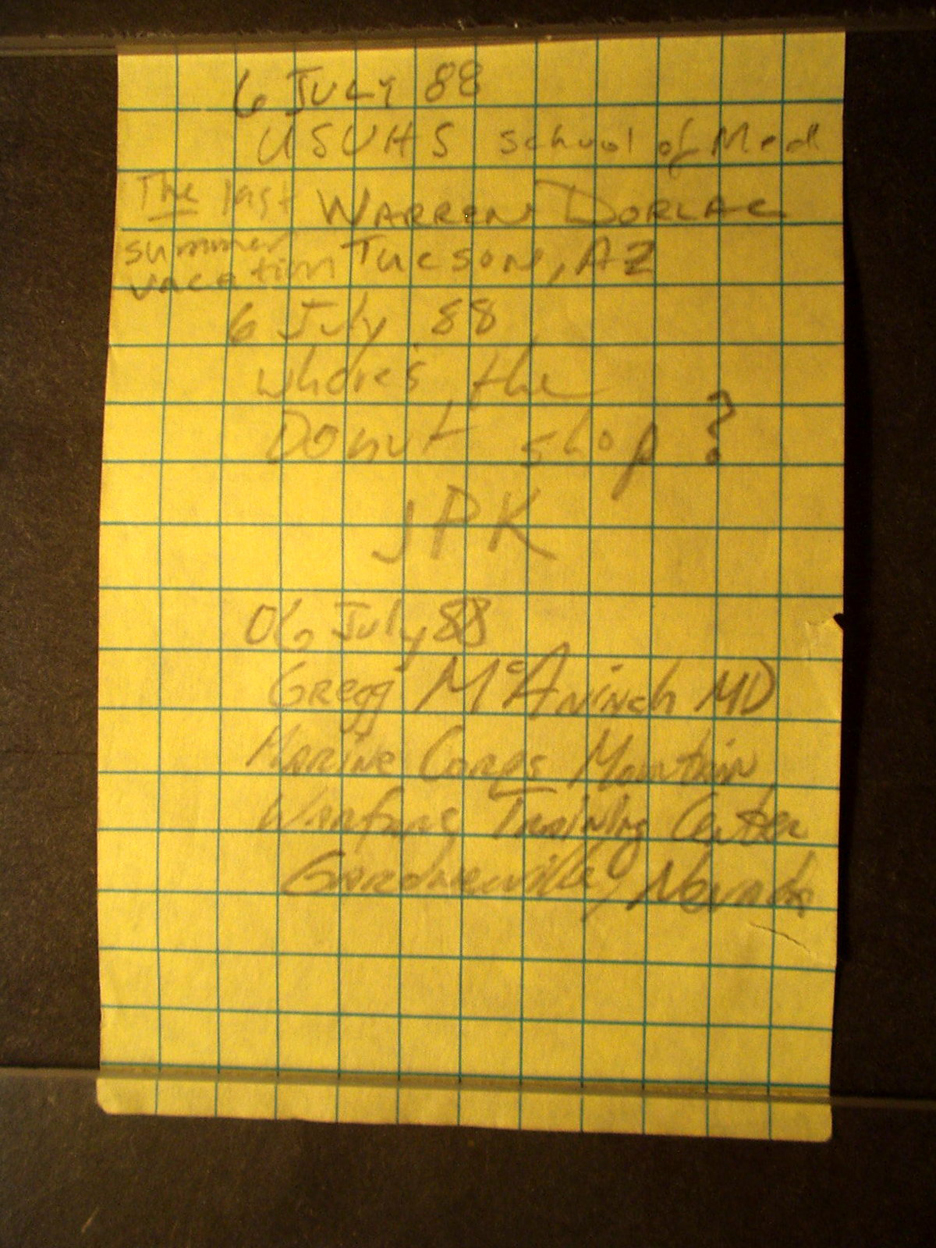 6 JULY 88
USUHS school of Med
The last
summer
vacation
WARREN DORLAC
TUCSON, AZ
6 July 88
where's the
Donut shop?
JPK
06 July 88
Gregg McAninch MD
Marine Corps Mountain
Warfare Training Center
Gardnerville, Nevada